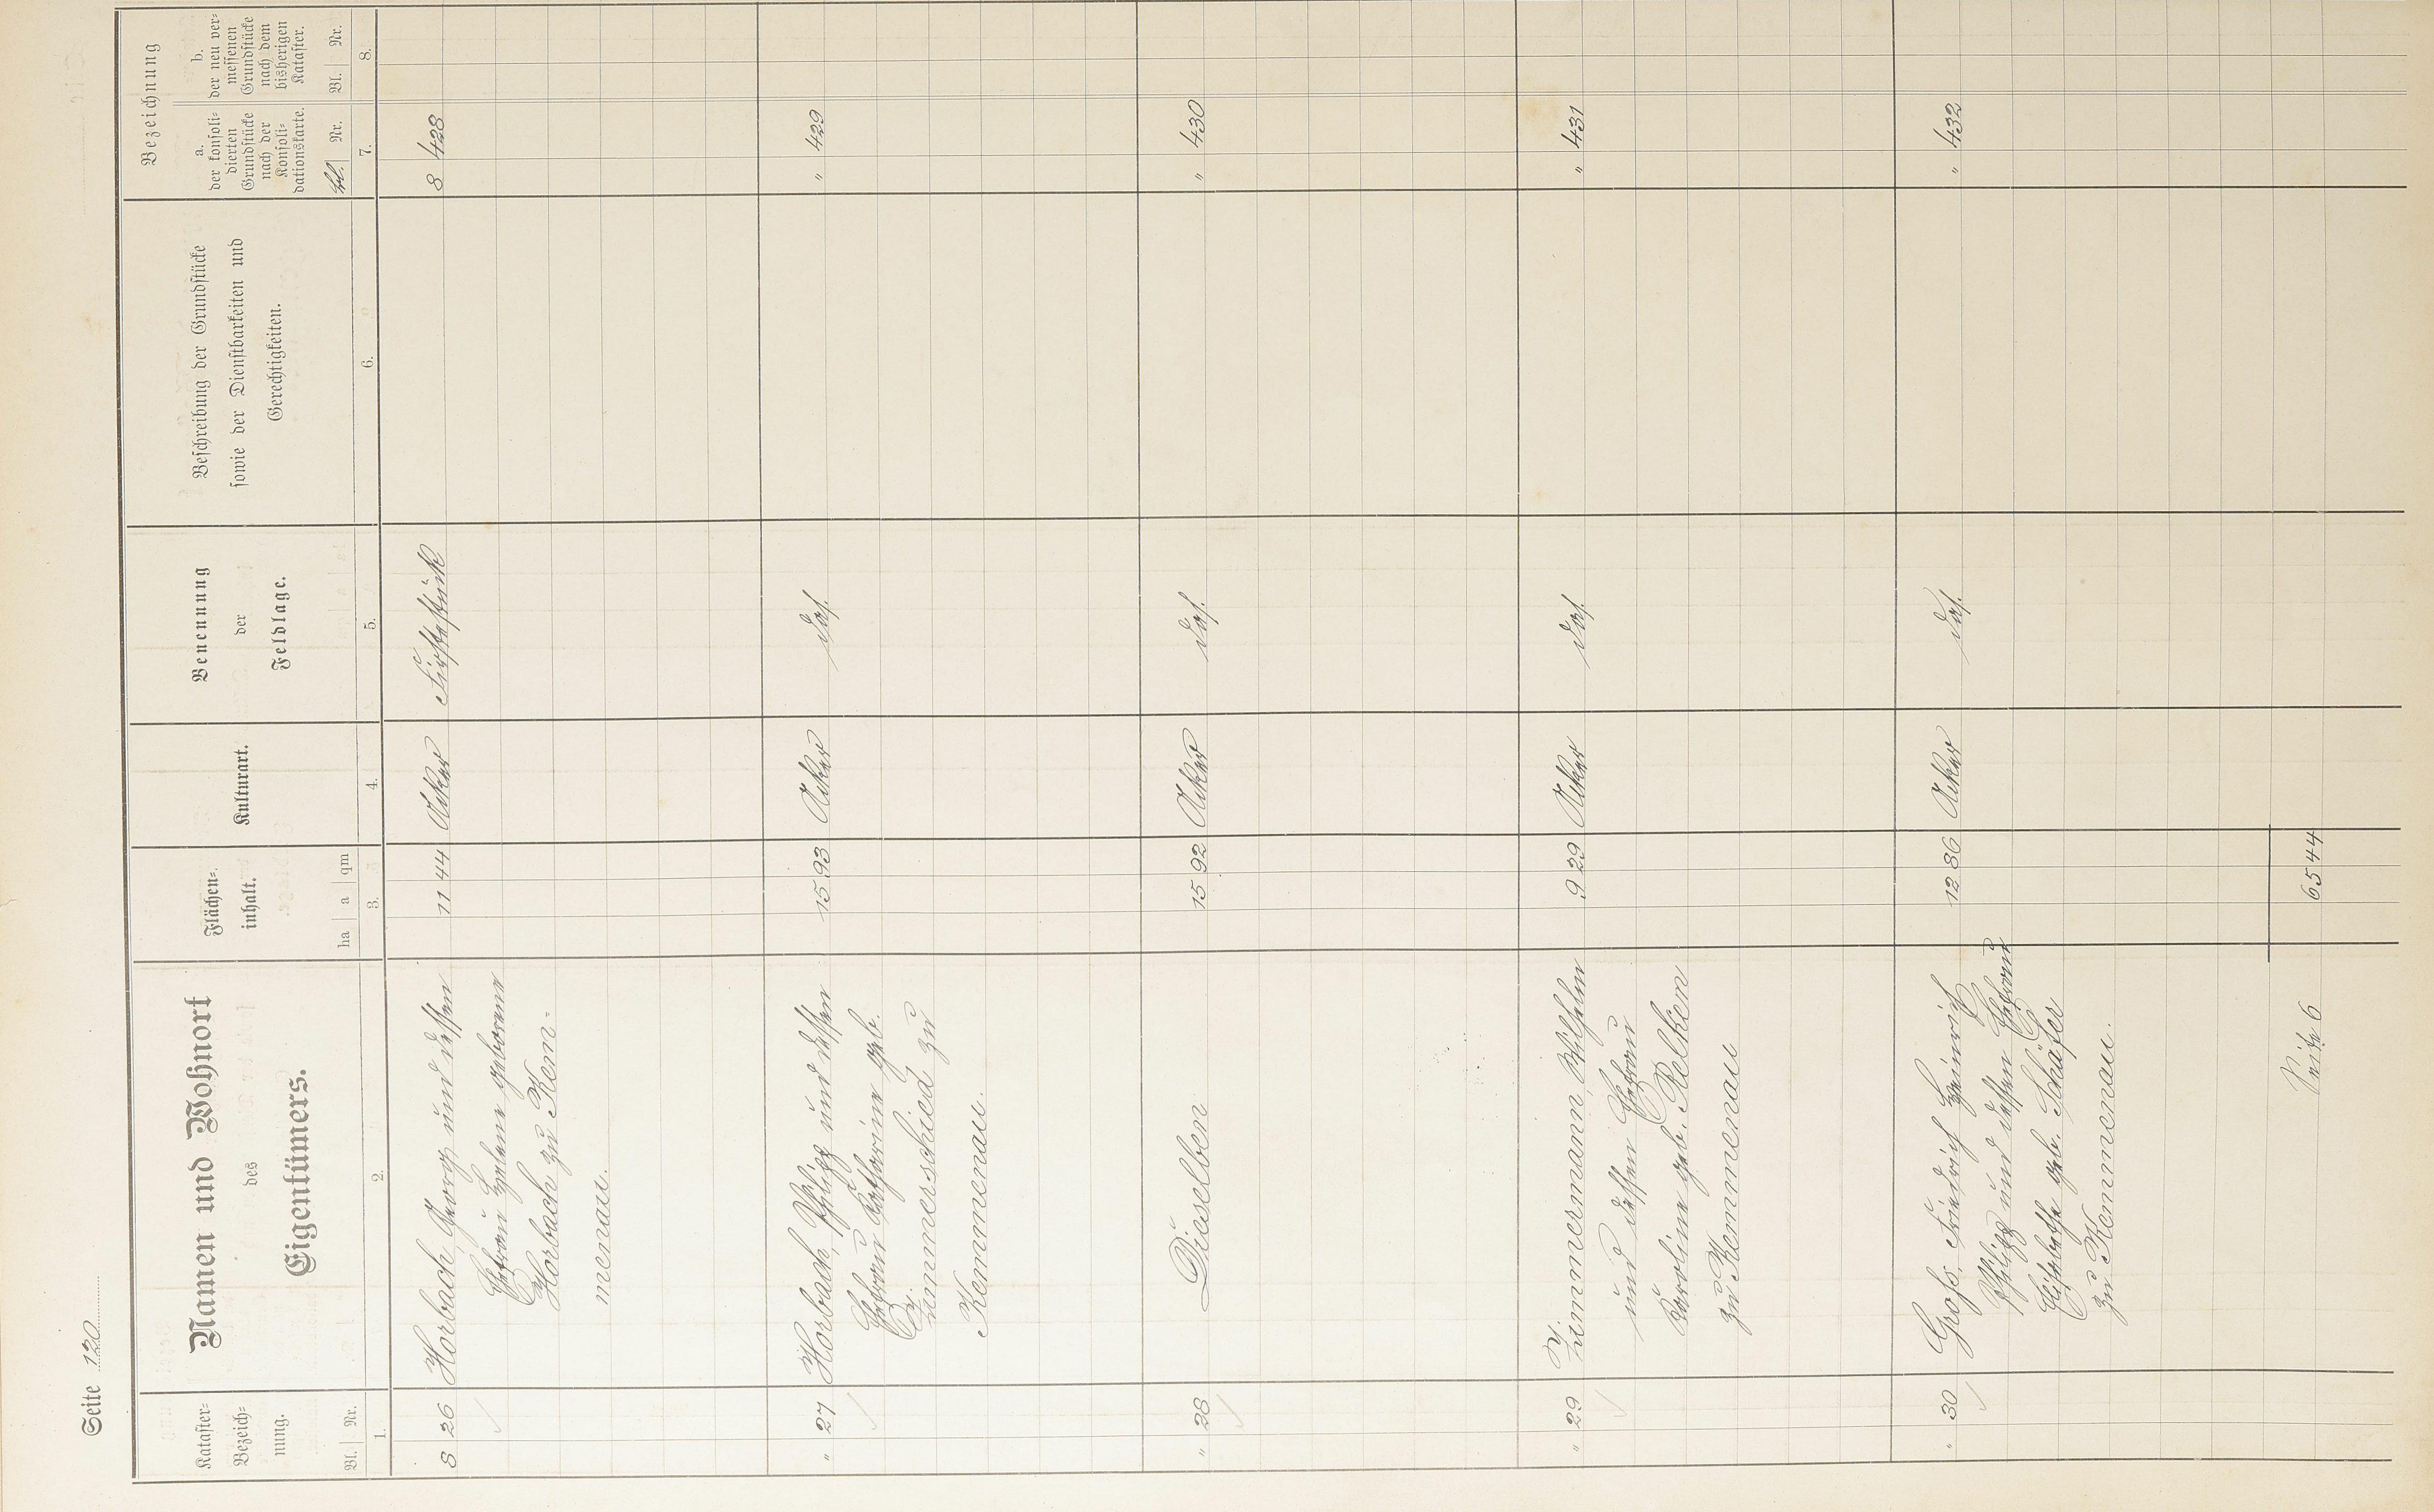 Seite 120
Kataster-
Bezeich-
nung.
Bl. Nr.
1.
Namen und Wohnort
des
Eigentümers.
2.
Flächen-
inhalt.
ha a qm
3.
Kulturart.
4.
Benennung
der
Feldlage.
5.
Beschreibung der Grundstücke
sowie der Dienstbarkeiten und
Gerechtigkeiten.
6.
Bezeichnung
a.
der konsoli-
dierten
Grundstücke
nach der
Konsoli-
dationskarte.
Bl. Nr.
7.
b.
der neu ver-
messenen
Grundstücke
nach dem
bisherigen
Kataster.
Bl. Nr.
8.
8 26 Horbach, Georg und dessen 11 44 Acker 8 428
Ehefrau Helene geborene
Horbach zu Kem-
menau.
" 27 Horbach, Philipp und dessen 15 93 Acker das. " 429
Ehefrau Katharine geb.
Zimmerschied zu
Kemmenau.
" 28 Dieselben 15 92 Acker das. " 430
" 29 Zimmermann, Wilhelm 9 29 Acker das. " 431
und dessen Ehefrau
Karoline geb. Relken
zu Kemmenau
" 30 Gross, Friedrich Heinrich 12 86 Acker das. " 432
Philipp und dessen Ehefrau
Elisabethe geb. Schäfer
zu Kemmenau.
Seite 6 65 44